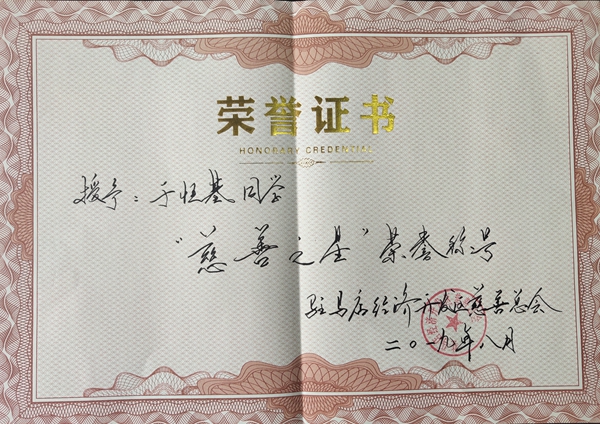 荣誉证书
HONORARY CREDENTIAL
授予：于恒基同学
“慈善之星”荣誉称号
驻马店经济开发区慈善总会
二〇一九年八月